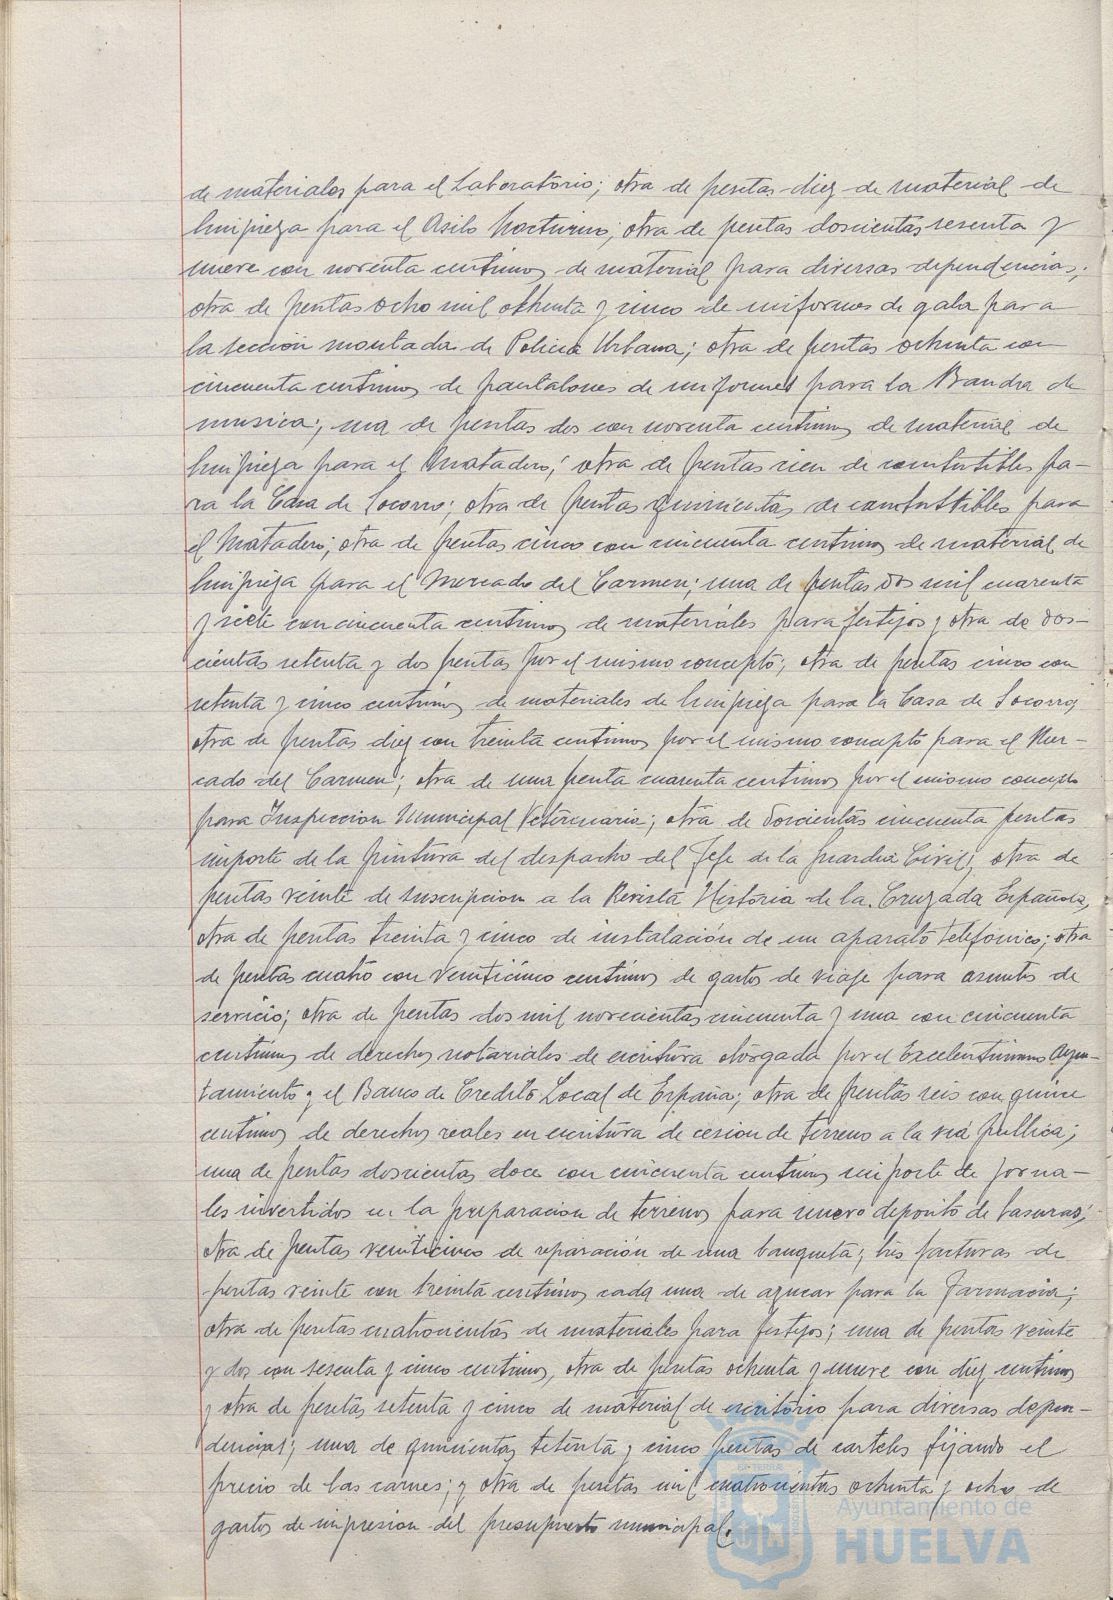 de materiales para el Laboratorio; otra de pesetas diez de material de
limpieza para el Asilo Nocturno; otra de pesetas doscientas sesenta y
nueve con noventa centimos de material para diversas dependencias;
otra de pesetas ocho mil ochenta y cinco de uniformes de gala para
la seccion montada de Policia Urbana; otra de pesetas ochenta con
cincuenta centimos de pantalones de uniformes para la Banda de
musica; una de pesetas dos con noventa centimos de material de
limpieza para el Matadero; otra de pesetas cien de combustibles pa-
ra la Casa de Socorro; otra de pesetas quinientas de combustibles para
el Matadero; otra de pesetas cinco con cincuenta centimos de material de
limpieza para el Mercado del Carmen; una de pesetas dos mil cuarenta
y siete con cincuenta centimos de materiales para festejos y otra de dos-
cientas setenta y dos pesetas por el mismo concepto; otra de pesetas cinco con
setenta y cinco centimos de materiales de limpieza para la Casa de Socorro;
otra de pesetas diez con treinta centimos por el mismo concepto para el Mer-
cado del Carmen; otra de una peseta cuarenta centimos por el mismo concepto
para Inspeccion Municipal Veterinaria; otra de doscientas cincuenta pesetas
importe de la pintura del despacho del Jefe de la Guardia Civil; otra de
pesetas veinte de suscripcion a la Revista Historia de la Cruzada Española,
otra de pesetas treinta y cinco de instalación de un aparato telefonico; otra
de pesetas cuatro con veinticinco centimos de gastos de viaje para asuntos de
servicio; otra de pesetas dos mil novecientas cincuenta y una con cincuenta
centimos de derechos notariales de escritura otorgada por el Excelentisimo Ayun-
tamiento y el Banco de Credito Local de España; otra de pesetas seis con quince
centimos de derechos reales en escritura de cesion de terreno a la via publica;
una de pesetas doscientas doce con cincuenta centimos importe de jorna-
les invertidos en la preparacion de terrenos para nuevo deposito de basuras;
otra de pesetas veinticinco de reparación de una banqueta; tres facturas de
pesetas veinte con treinta centimos cada una de azucar para la Farmacia;
otra de pesetas cuatrocientas de materiales para festejos; una de pesetas veinte
y dos con sesenta y cinco centimos, otra de pesetas ochenta y nueve con diez centimos
y otra de pesetas setenta y cinco de material de escritorio para diversas depen-
dencias; una de quinientas setenta y cinco pesetas de carteles fijando el
precio de las carnes; y otra de pesetas mil cuatrocientas ochenta y ocho de
gastos de impresion del presupuesto municipal.
Ayuntamiento de
HUELVA